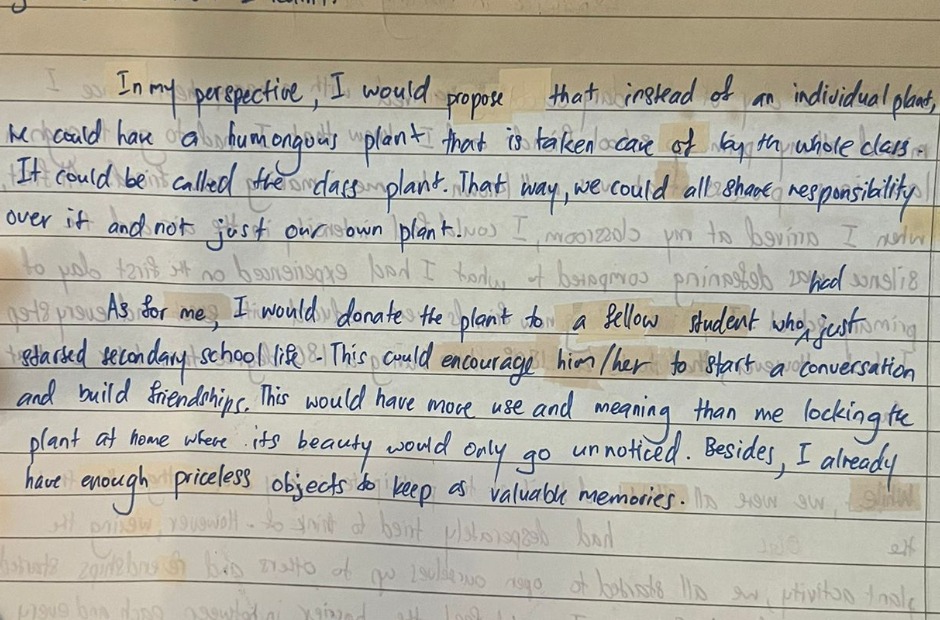 In my perspective, I would propose that instead of an individual plant,
we could have a humongous plant that is taken care of by the whole class.
It could be called the class plant. That way, we could all share responsibility
over it and not just our own plant.
had
As for me, I would donate the plant to a fellow student who just
started secondary school life. This could encourage him/her to start a conversation
and build friendships. This would have more use and meaning than me locking the
plant at home where its beauty would only go unnoticed. Besides, I already
have enough priceless objects to keep as valuable memories.